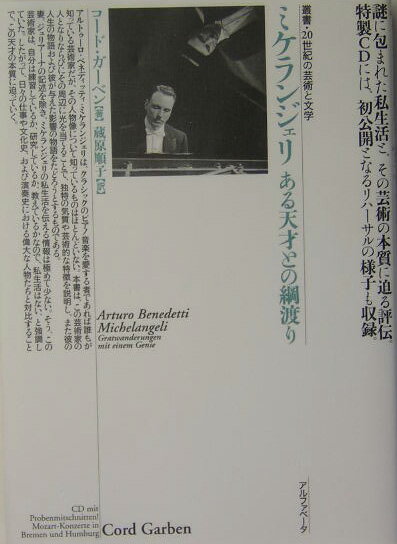 謎に包まれた私生活と、その芸術の本質に迫る評伝。
特製CDには、初公開となるリハーサルの様子も収録。
叢書・20世紀の芸術と文学
ミケランジェリ ある天才との綱渡り
コード・ガーベン[著] 蔵原順子[訳]
アルトゥーロ・ベネデッティ・ミケランジェリは、クラシックのピアノ音楽を愛する者であれば誰もが
知っている芸術家だが、その人物像について知っているものはほとんどいない。本書は、この芸術家の
人となりならびにその周辺に光を当てることで、独特の気質や芸術的な特徴を説明し、また彼の
人生の物語および彼が与えた影響の物語をたどろうとするものである。
妻、ジュリアーナの記述を除き、ミケランジェリの私生活を伝える情報は極めて少ない。そう、この
芸術家は、自分は練習しているか、研究しているか、教えているかなので、私生活はない、と強調し
ていた。したがって、日々の仕事や文化史、および演奏史における偉大な人物たちと対比すること
で、この天才の本質に迫っていく。
Arturo Benedetti
Michelangeli
Gratwanderungen
mit einem Genie
CD mit
Probenmitschnitten!
Mozart-Konzerte in
Bremen und Humburg
Cord Garben
アルファベータ